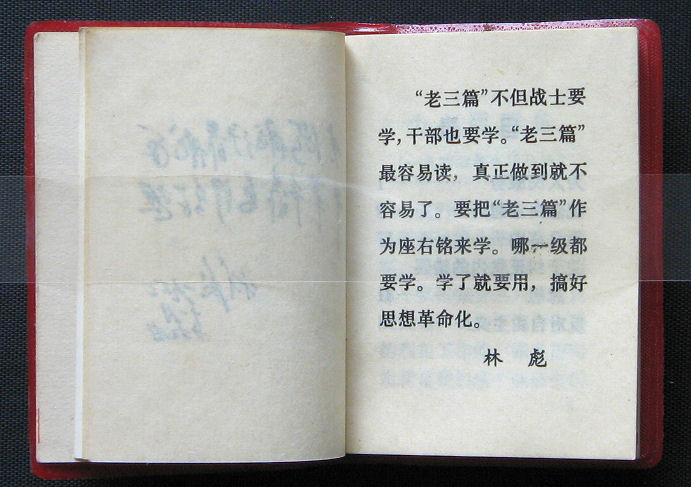 “老三篇”不但战士要
学，干部也要学。“老三篇”
最容易读，真正做到就不
容易了。要把“老三篇”作
为座右铭来学。哪一级都
要学。学了就要用，搞好
思想革命化。
林 彪